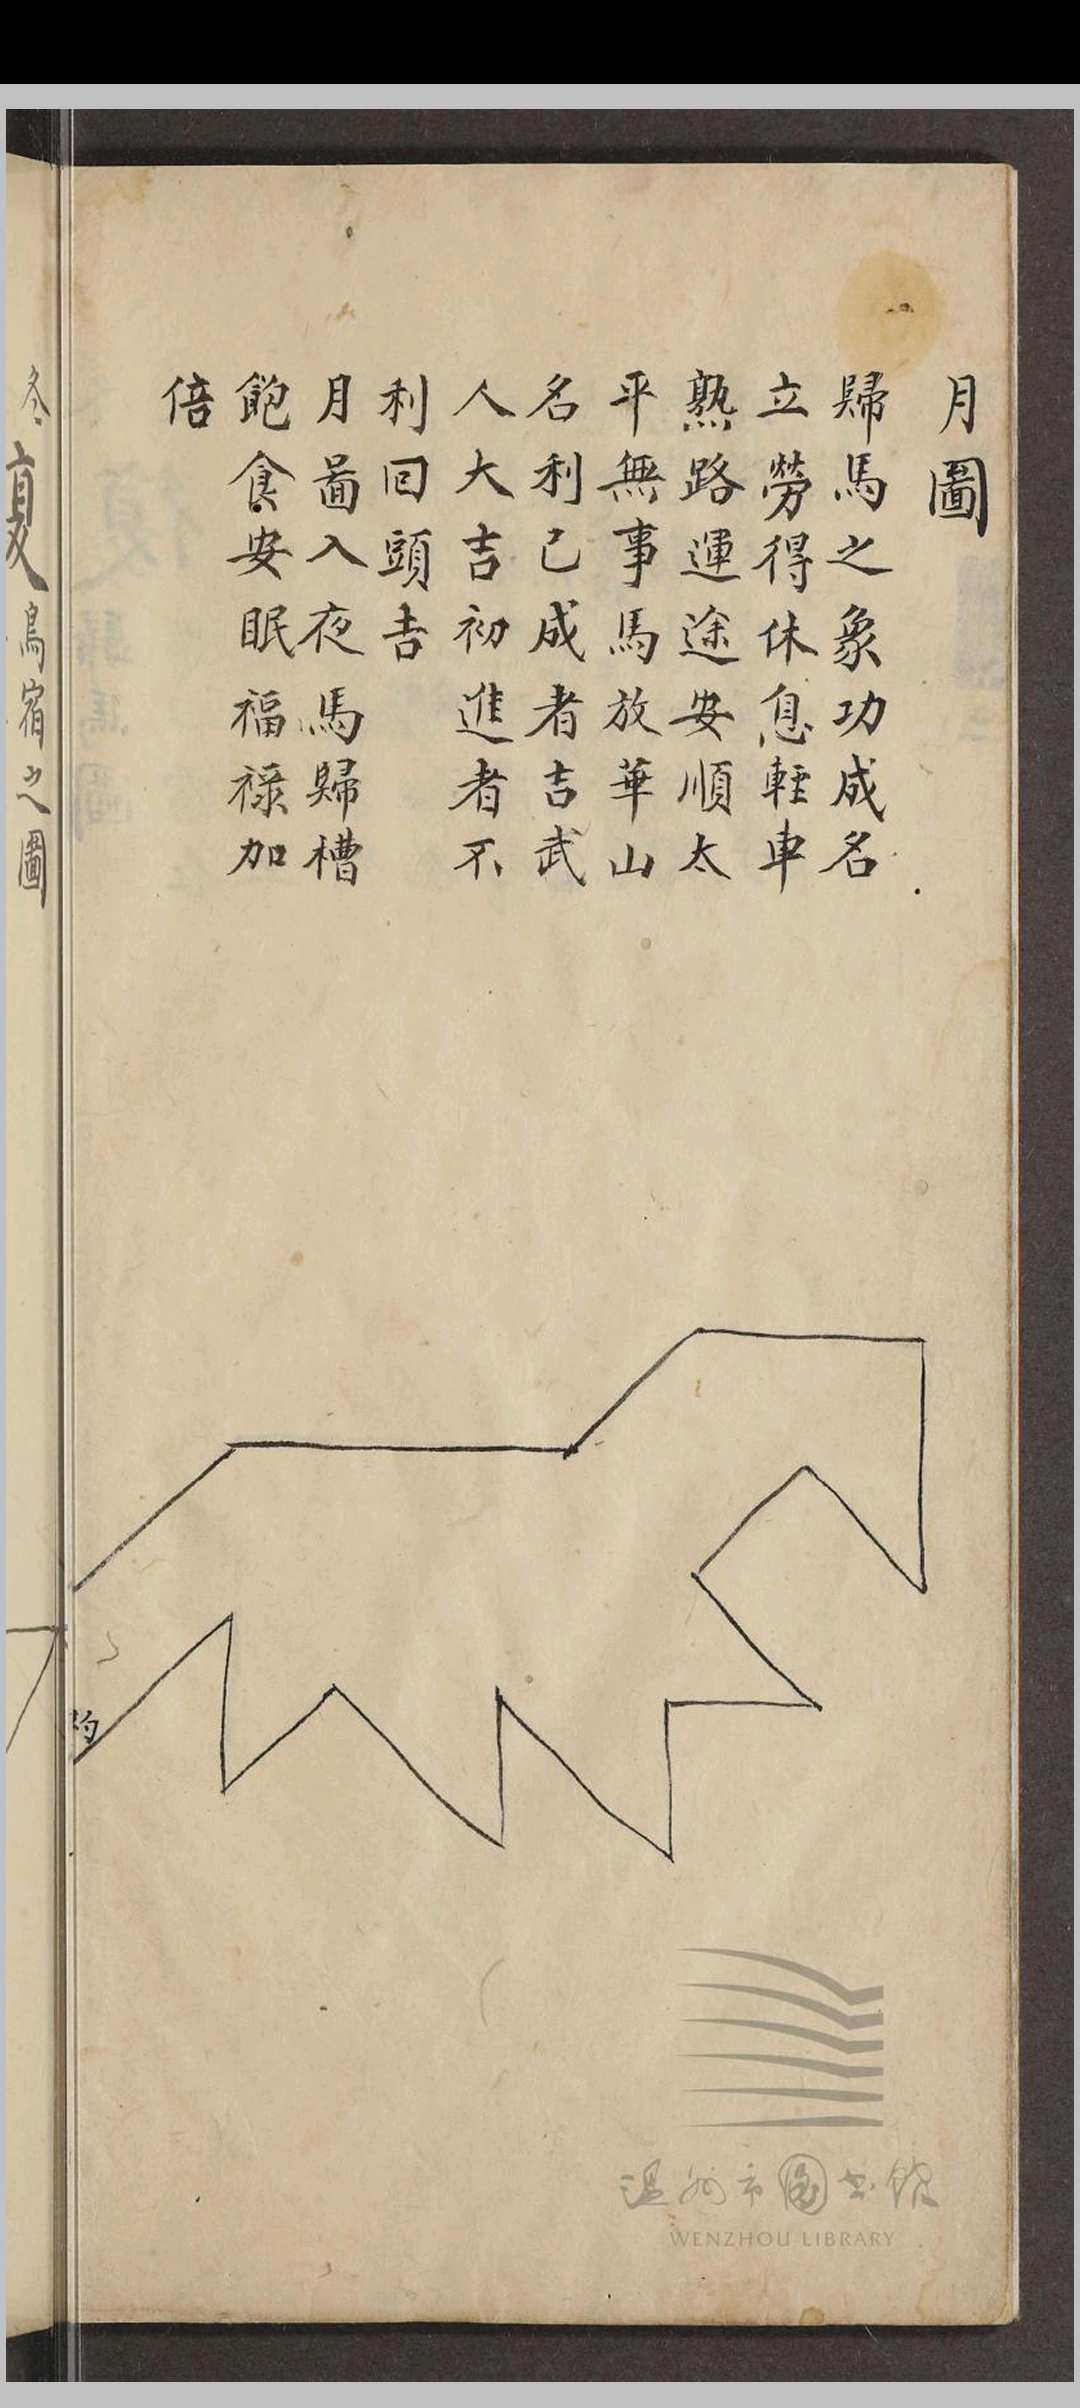 月圖
歸馬之象功成名
立勞得休息輕車
熟路運途安順太
平無事馬放華山
名利已成者吉武
人大吉初進者不
利回頭吉
月圖入夜馬歸槽
飽食安眠福祿加
倍
冬夏鳥宿之圖
温州市图书馆
WENZHOU LIBRARY